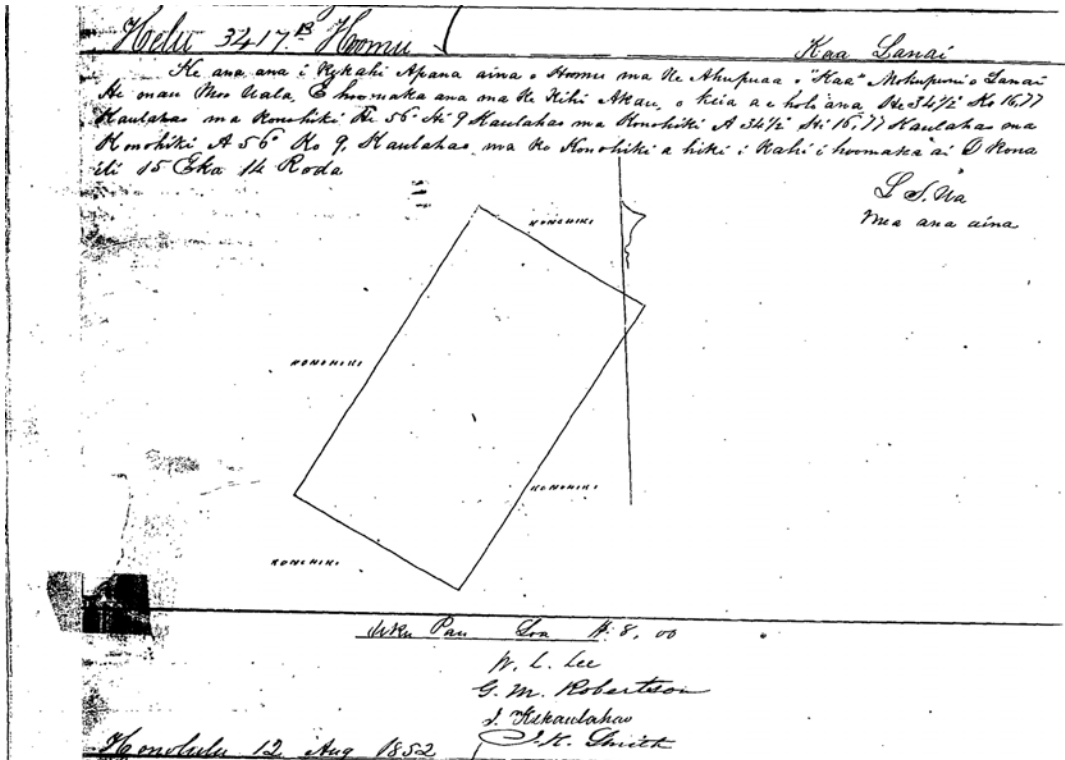 Helu 3417.B Hoomu
Kaa Lanai
He ana ana i kekahi Apana aina o Hoomu ma ke Ahupuaa o "Kaa" Mokupuni o Lanai
He mau Moo Uala, E hoomaka ana ma ke Kihi Akau, o keia a e holo ana, He 34 1/2 Ko 16,77
Kaulahao ma Konohiki He 56° Hi 9 Kaulahao ma Konohiki A 34 1/2 Hi 16,77 Kaulahao ma
Konohiki A 56° Ko 9, Kaulahao, ma ke Konohiki a hiki i kahi i hoomaka ai O kona
ili 15 Eka 14 Roda
L S. Ua
Mea ana aina
KONOHIKI
KONOHIKI
KONOHIKI
KONOHIKI
Uku Pau Loa $: 8, 00
W. L. Lee
G. M. Robertson
J. Kekaulahao
J. H. Smith
Honolulu 12 Aug 1852